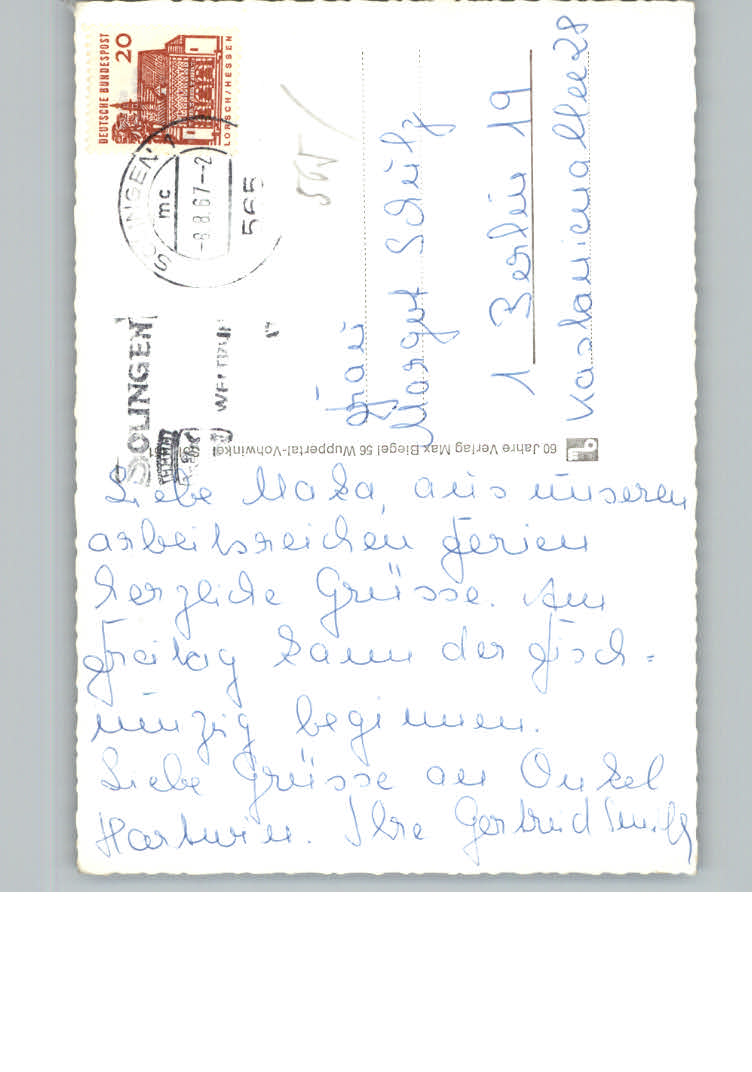 DEUTSCHE BUNDESPOST
20
LORSCH/HESSEN
SOLINGEN
mc
-8.8.67--2
565
SOLINGEN
565
Frau
Margot Schulz
1 Berlin 19
Kastanienallee 28
60 Jahre Verlag Max Biegel 56 Wuppertal-Vohwinkel
Liebe aus unseren
arbeitsreichen Ferien
herzliche Grüsse. Am
Freitag kann der
beginnen.
Liebe Grüsse an Onkel
Ihre Gertrud